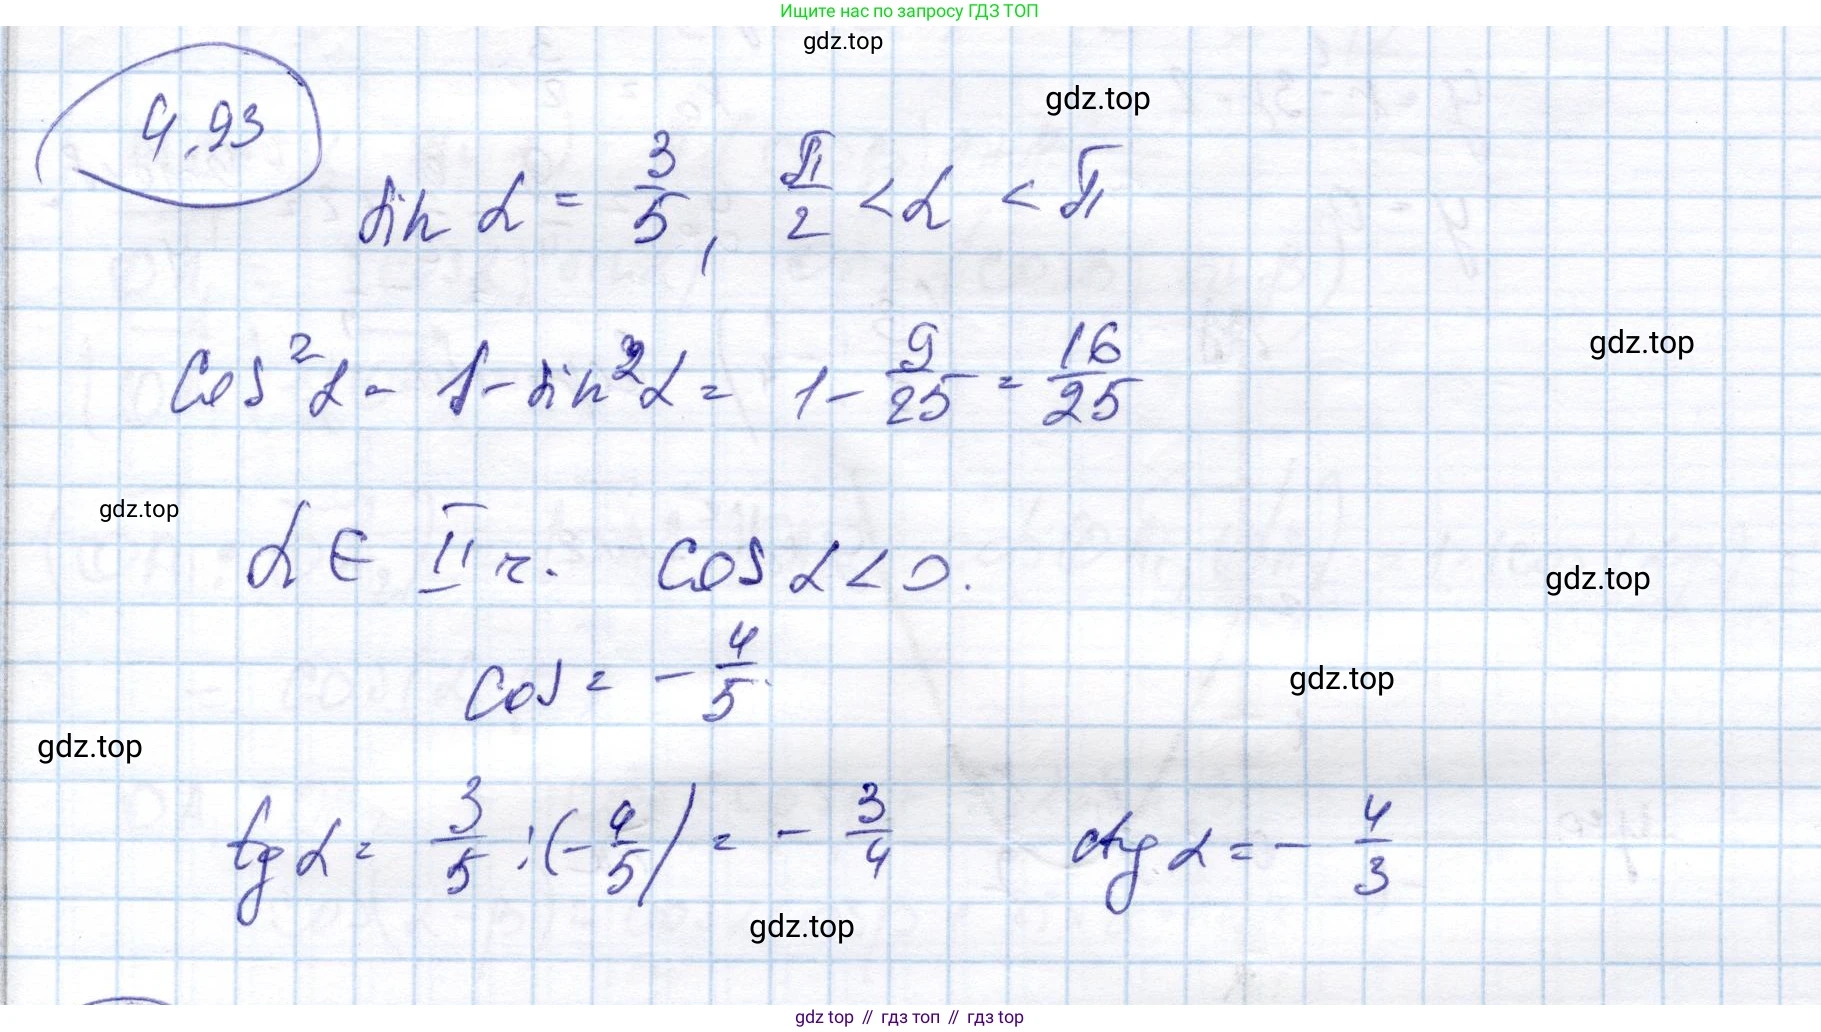 Ищите нас по запросу ГДЗ ТОП
gdz.top
gdz.top
4.93
sin α = 3/5, π/2 < α < π
gdz.top
cos²α = 1 - sin²α = 1 - 9/25 = 16/25
gdz.top
α ∈ II ч. cos α < 0.
gdz.top
cos = - 4/5
gdz.top
gdz.top
tg α = 3/5 : (- 4/5) = - 3/4 ctg α = - 4/3
gdz.top
gdz top // гдз топ // гдз top